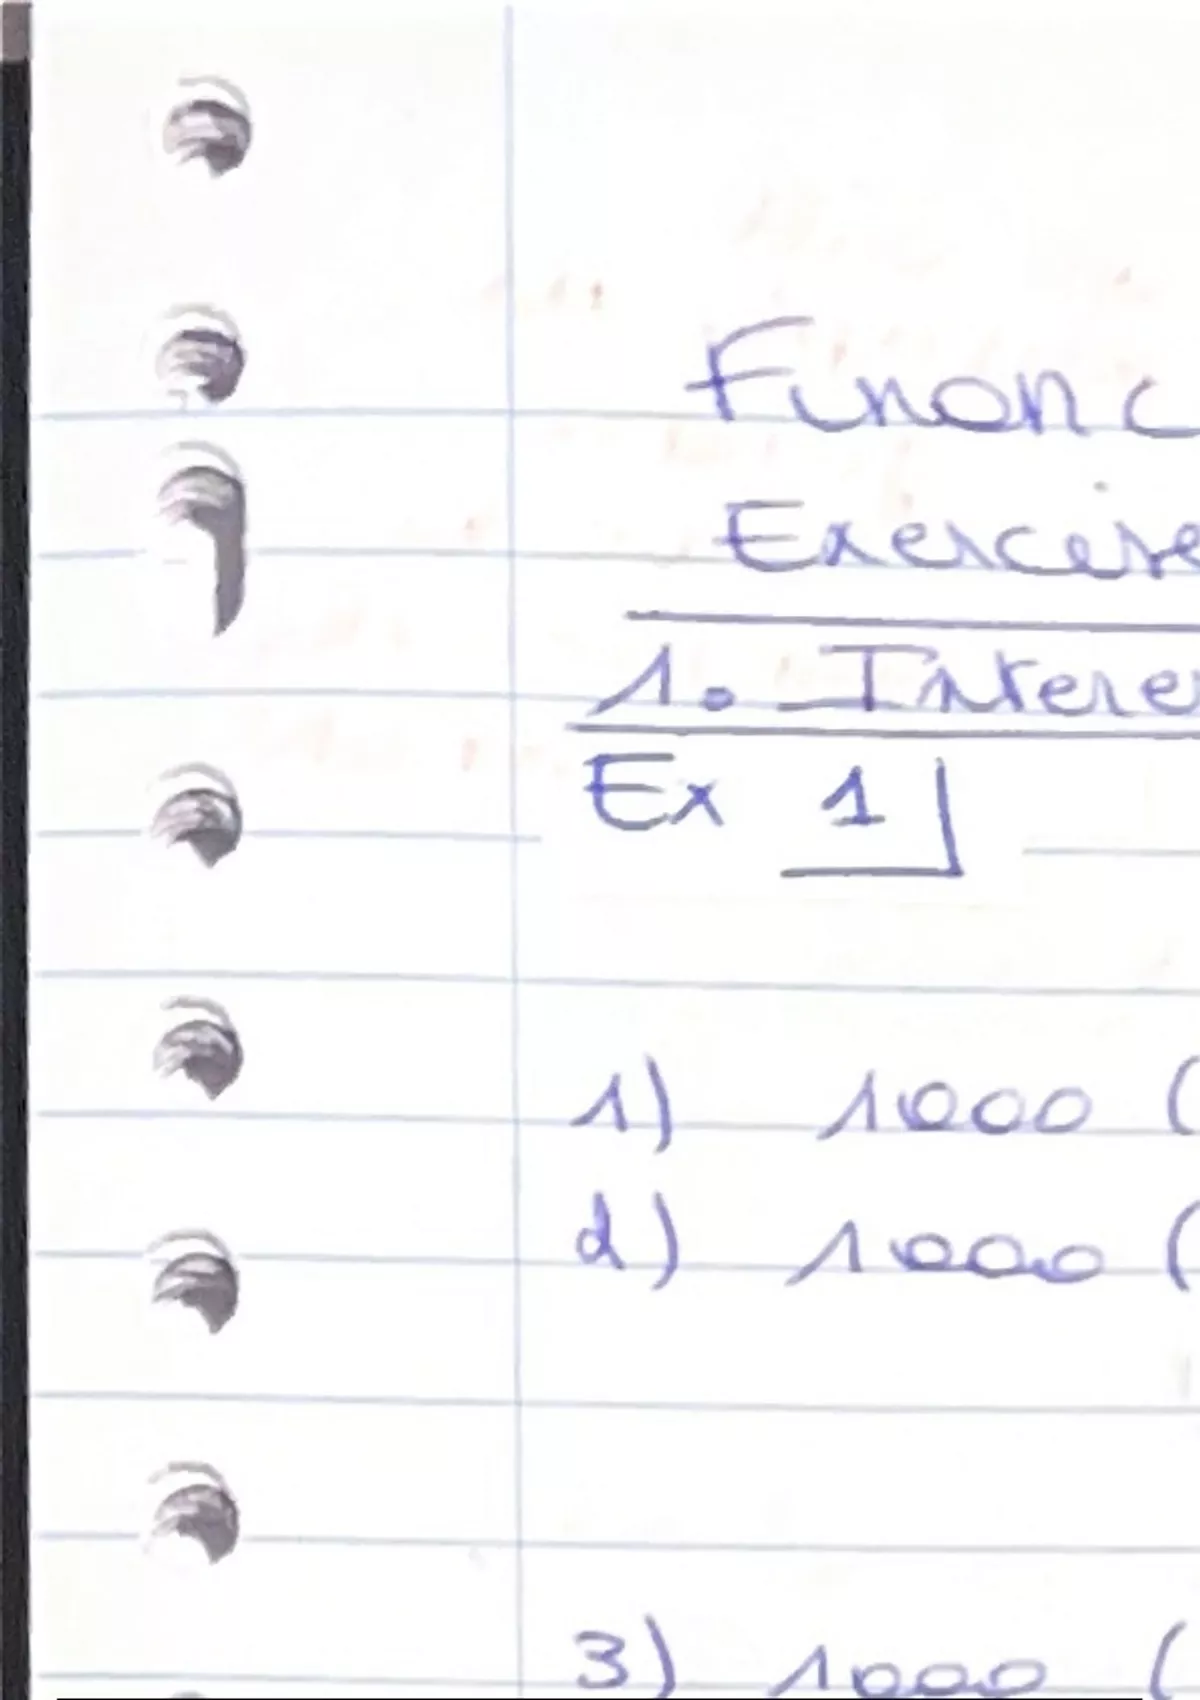 Financ
Exercise
1. Intere
Ex 1
1) 1000 (
2) 1000 (
3) 1000 (